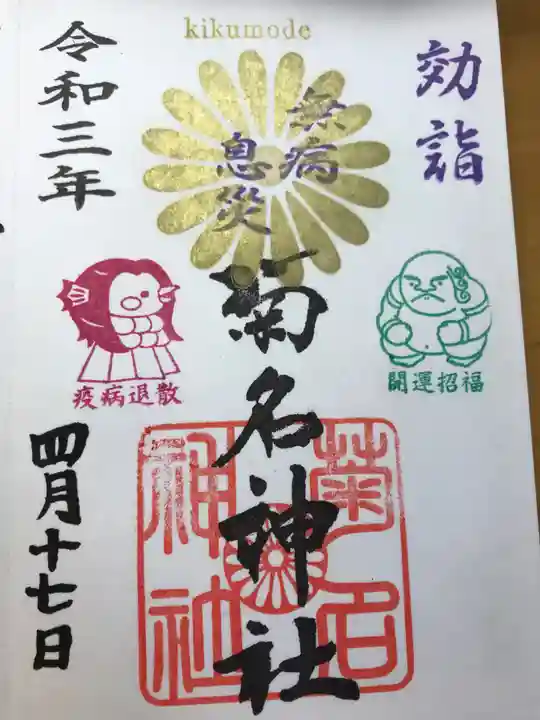 kikumode
効詣
無病
息災
菊名神社
令和三年
四月十七日
開運招福
疫病退散
菊名
神社